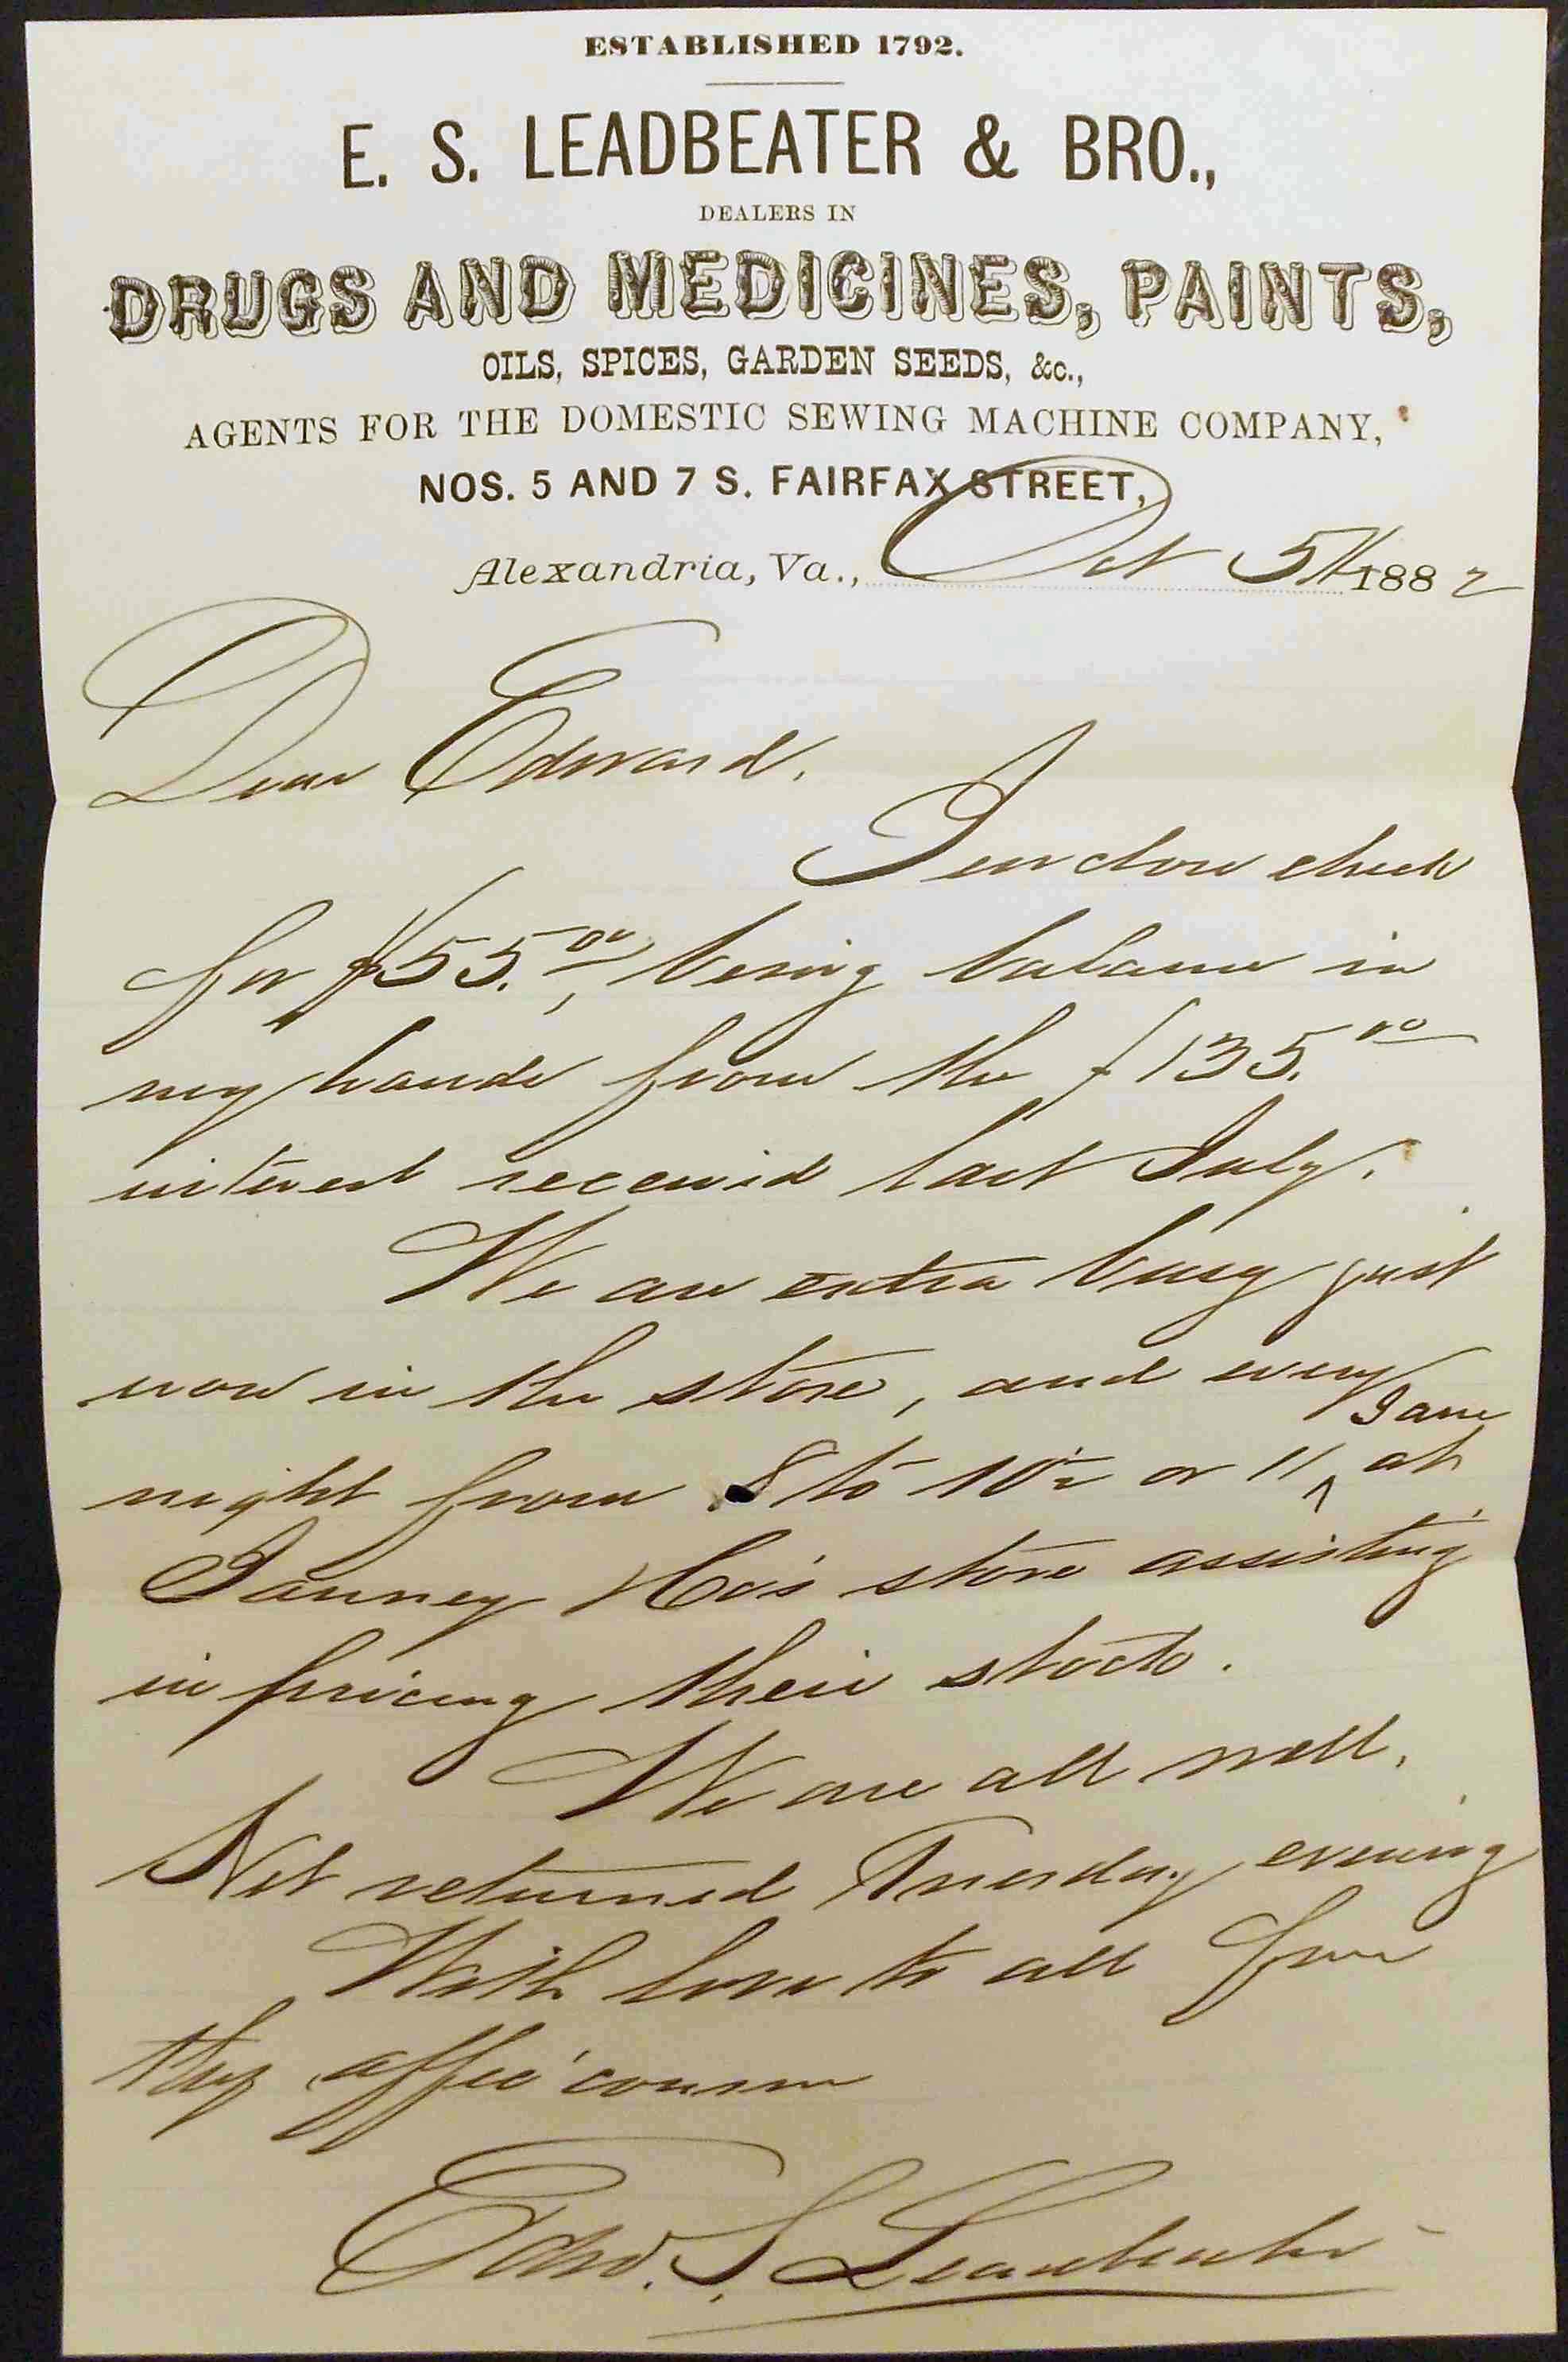 ESTABLISHED 1792.
E. S. LEADBEATER & BRO.,
DEALERS IN
DRUGS AND MEDICINES, PAINTS,
OILS, SPICES, GARDEN SEEDS, &c.,
AGENTS FOR THE DOMESTIC SEWING MACHINE COMPANY,
NOS. 5 AND 7 S. FAIRFAX STREET,
Alexandria, Va., Oct 5th 1882
Dear Edward.
I enclose check
for $55.00, being balance in
my hands from the $135.00
interest received last July.
We are extra busy just
now in the store, and every
I am
night from 8 to 10½ or 11 ^ at
Janney & Co's store assisting
in pricing their stock.
We are all well.
returned Tuesday evening
With love to all from
thy affec' cousin
Edw. S. Leadbeater